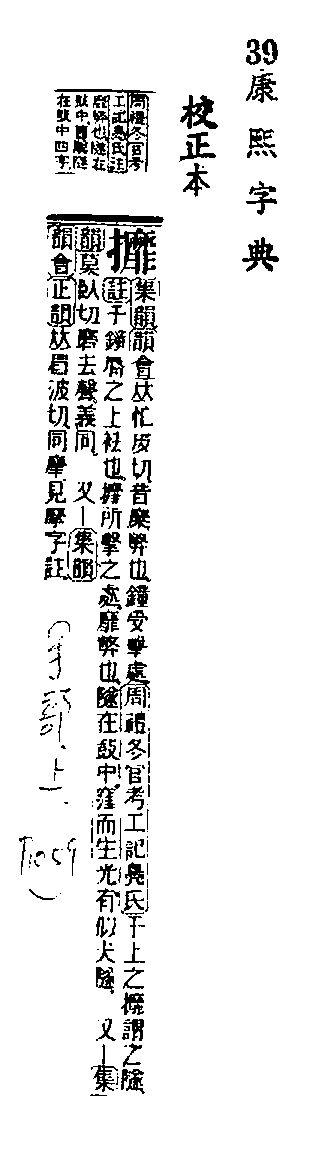 39
康熙字典
校正本
周禮冬官考
工記鳧氏註
靡弊也隧在
鼓中舊脫隧
在鼓中四字
攠
集韻韻會𠀤忙皮切音糜弊也鐘受擊處周禮冬官考工記鳧氏于上之攠謂之隧
註于鐘脣之上袪也攠所擊之處靡弊也隧在鼓中窐而生光有似夫隧 又丨集
韻莫臥切磨去聲義同 又丨集韻
韻會正韻𠀤眉波切同摩見摩字註
(手部上 P1059)